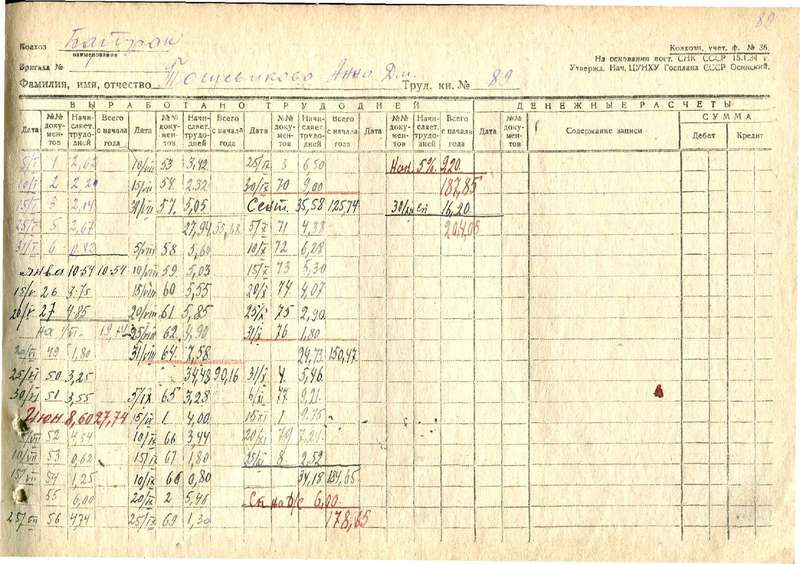 89
Колхоз Батрак
наименование
Колхозн. учет. ф. № 36.
На основании пост. СНК СССР 15.I.34 г.
Утвержд. Нач. ЦУНХУ Госплана СССР Осинский.
Бригада № 5
Фамилия, имя, отчество Анна Дм. Труд. кн. № 89
ВЫРАБОТАНО ТРУДОДНЕЙ ДЕНЕЖНЫЕ РАСЧЕТЫ
Дата №№ документов Начисляет. трудодней Всего с начала года Дата №№ документов Начисляет. трудодней Всего с начала года Дата №№ документов Начисляет. трудодней Всего с начала года Дата №№ документов Начисляет. трудодней Всего с начала года Дата №№ документов Содержание записи СУММА Дебет Кредит
5/I 1 2,62 10/VII 53 3,42 25/IX 3 6,50 Нач. 5% 9,20
10/I 2 2,20 15/VII 54 2,32 30/IX 70 9,00 187,85
15/I 3 2,14 31/VII 57 5,05 Сент. 35,58 125,74 16,20
25/I 5 2,67 27,94 55,68 5/X 71 4,38 204,05
31/I 6 0,82 5/VIII 58 5,60 10/X 72 6,28
Янва 10-54 10-54 10/VIII 59 5,03 15/X 73 5,30
26 3-75 15/VIII 60 5,55 20/X 74 4,07
27 4,85 20/VIII 61 5,85 25/X 75 2,90
На 1/VI 19,14 25/VIII 62 4,90 31/X 76 1,80
20/VI 49 1,80 31/VIII 64 7,58 24,73 150,47
25/VI 50 3,25 34,48 90,16 31/X 4 5,46
30/VI 51 3,55 5/IX 65 3,28 6/XI 77 9,21
Июн 8,60 27,74 15/IX 1 4,00 15/XI 1 9,75
5/VII 52 4,54 10/IX 66 3,44 20/XI 79 7,24
10/VII 53 0,62 15/IX 67 1,80 25/XI 8 2,52
15/VII 54 1,25 10/IX 68 0,80 34,18 184,65
55 6,00 20/IX 2 5,46 6,00
25/VII 56 4,74 25/IX 69 1,30 178,65